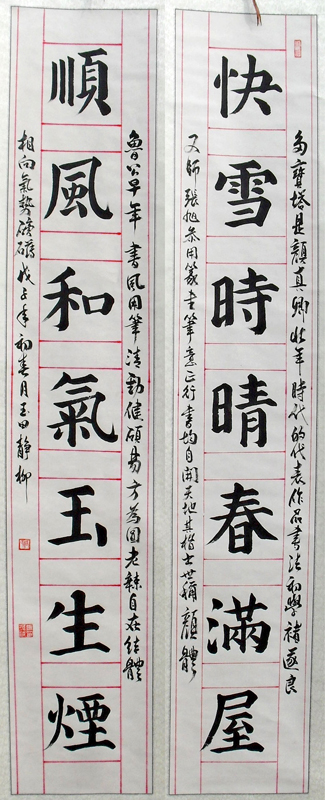 多寶塔是顏真卿壯年時代的代表作品書法初學褚遂良
快雪時晴春滿屋
又師張旭參用篆書筆意正行書均自開天地其楷書世稱顏體
魯公早年書風用筆清勁俊碩易方為圓老辣自在結體
順風和氣玉生煙
相向氣勢磅礴戊子年初春月玉田靜柳